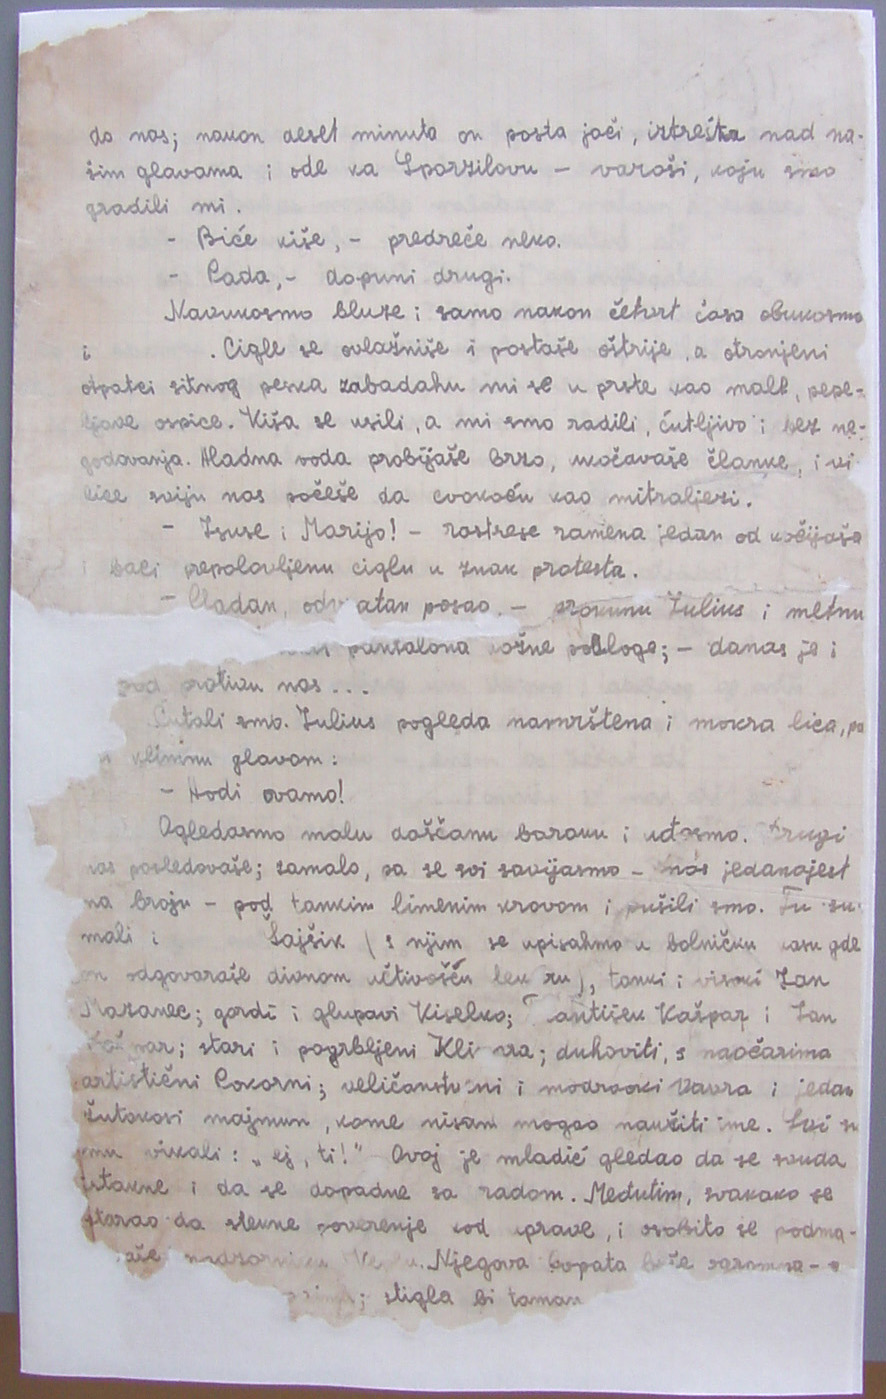 do nas; nakon deset minuta on posta jači, iztrešta nad na-
šim glavama i ode ka Sporzilovu – varoši, koju smo
gradili mi.
– Biće kiše, – predreče neko.
– Pada, – dopuni drugi.
Navukosmo bluze i samo nakon četvrt časa obukosmo
i . Cigle se ovlažniše i postaše oštrije, a otronjeni
otpatci sitnog peska zabadahu mi se u prste kao male, pepe-
ljave ospice. Kiša se usili, a mi smo radili, ćutljivo i bez ne-
godovanja. Hladna voda probijaše brzo, ukočavaše članke, i vi
lice sviju nas počeše da cvokoću kao mitraljezi.
– Isuse i Marijo! – rastrese ramena jedan od kočijaša
i baci prepolovljenu ciglu u znak protesta.
– posao. – prokunu Julius i metnu
pantalona kožne podloge; – danas je i
protivu nas ...
Ćutali smo. Julius pogleda namrštena i mokra lica, pa
klimnu glavom:
– Hodi ovamo!
Ogledasmo malu daščanu baraku i uđosmo. Drugi
nas posledovaše; zamalo, pa se svi savijasmo – nas jedanajest
na broju – pod tankim limenim krovom i pušili smo. Tu su
mali i Šajšik (s njim se upisahmo u bolničku kasu gde
on odgovaraše divnom učtivošću ), tanki i visoki Jan
Mazanec; gordi i glupavi Kiselko; Kašpar i Jan
stari i pogrbljeni duhoviti, s naočarima
artistični Pokorni; veličanstveni i modrooki Vavra i jedan
žutokosi majmun, kome nisam mogao naučiti ime. Svi su
mu vikali: „ej, ti!" Ovaj je mladić gledao da se svuda
istakne i da se dopadne sa radom. Međutim, svakako se
starao da stekne poverenje kod uprave, i osobito se podma-
Njegova lopata beše ogromna –
stigla bi taman